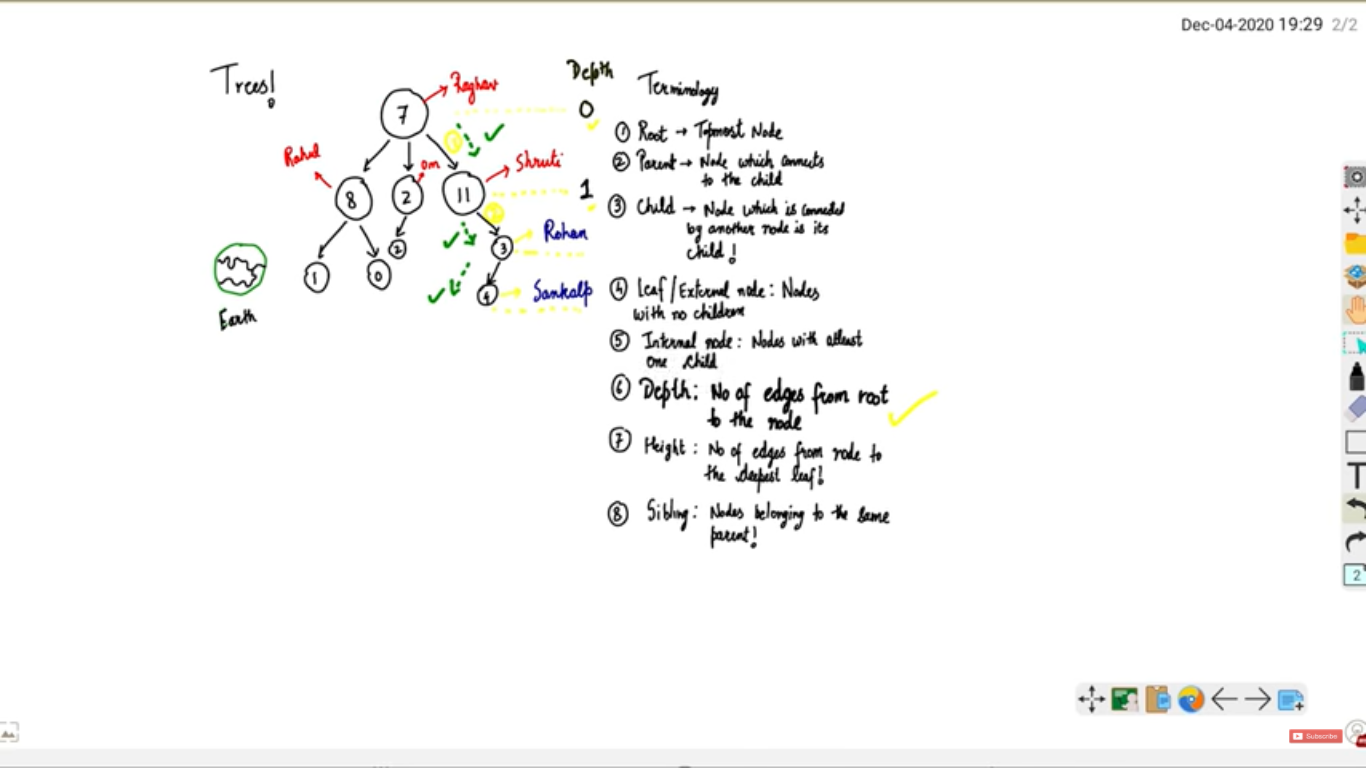 Dec-04-2020 19:29 2/2
Trees!
Depth
Terminology
7
Raghav
0
Rahul
8
2
om
11
Shruti
1
1
0
2
3
Rohan
4
Sankalp
Earth
① Root → Topmost Node
② Parent → Node which connects
to the child
③ Child → Node which is connected
by another node is its
child!
④ Leaf/External node: Nodes
with no children
⑤ Internal node: Nodes with atleast
one child
⑥ Depth: No of edges from root
to the node
⑦ Height: No of edges from node to
the deepest leaf!
⑧ Sibling: Nodes belonging to the same
parent!
T
2
Subscribe